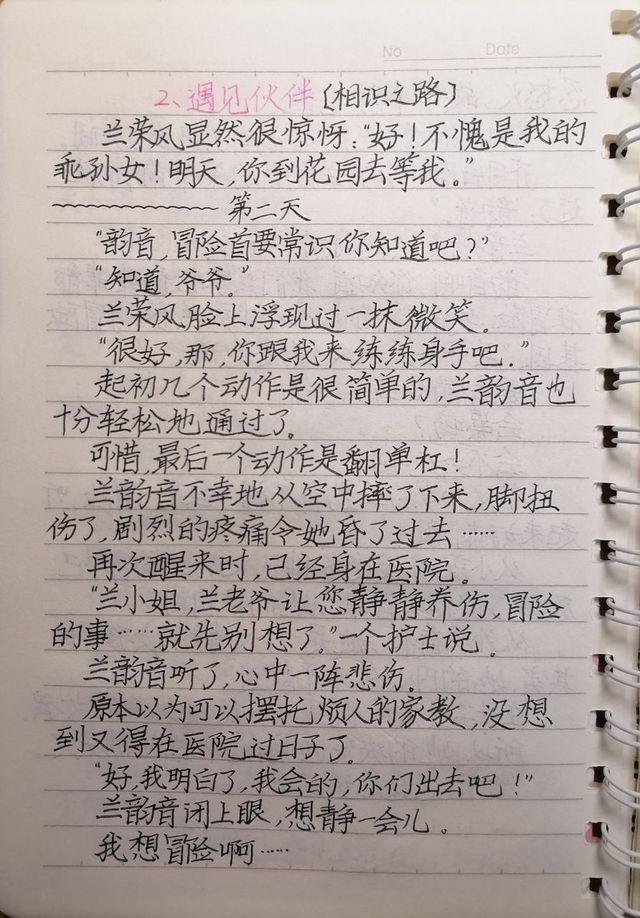 No Date
2、遇见伙伴〔相识之路〕
兰荣风显然很惊讶：“好！不愧是我的
乖孙女！明天，你到花园去等我。”
~~~~~~~~~~~~ 第二天
“韵音，冒险首要常识你知道吧？”
“知道，爷爷。”
兰荣风脸上浮现过一抹微笑。
“很好，那，你跟我来练练身手吧．”
起初几个动作是很简单的，兰韵音也
十分轻松地通过了。
可惜，最后一个动作是翻单杠！
兰韵音不幸地从空中摔了下来，脚扭
伤了，剧烈的疼痛令她昏了过去……
再次醒来时，已经身在医院。
“兰小姐，兰老爷让您静静养伤，冒险
的事……就先别想了。”一个护士说。
兰韵音听了，心中一阵悲伤。
原本以为可以摆托烦人的家教，没想
到又得在医院过日子了。
“好，我明白了，我会的，你们出去吧！”
兰韵音闭上眼，想静一会儿。
我想冒险啊……